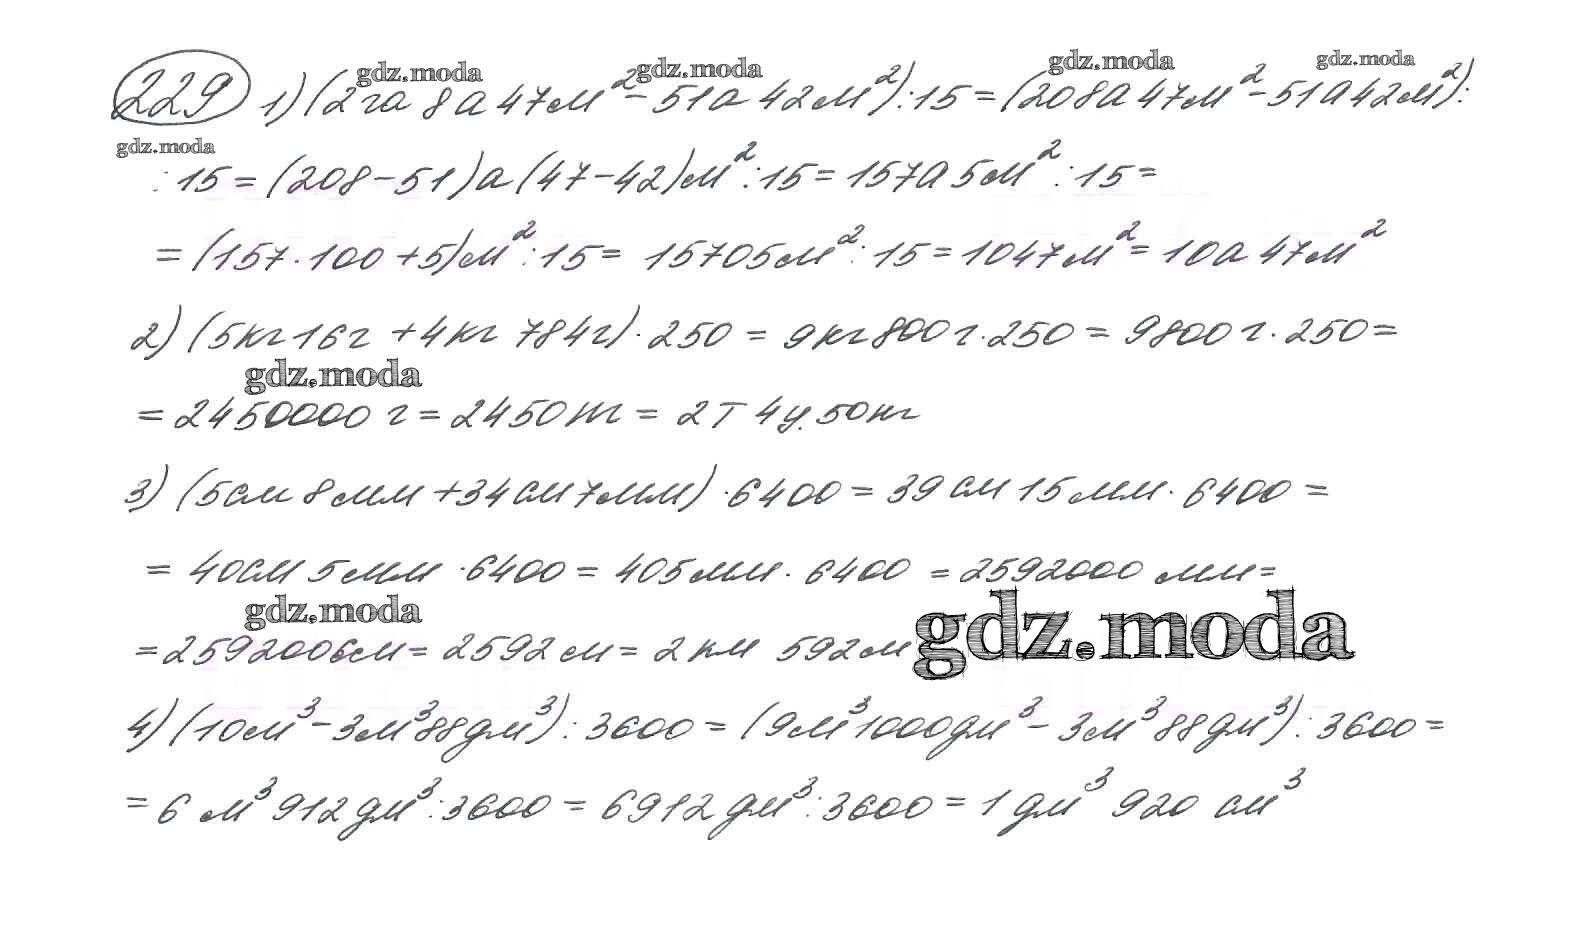 229 1) (2 га 8 а 47 м² - 51 а 42 м²) : 15 = (208 а 47 м² - 51 а 42 м²) :
: 15 = (208 - 51) а (47 - 42) м² : 15 = 157 а 5 м² : 15 =
= (157 · 100 + 5) м² : 15 = 15705 м² : 15 = 1047 м² = 10 а 47 м²
2) (5 кг 16 г + 4 кг 784 г) · 250 = 9 кг 800 г · 250 = 9800 г · 250 =
= 2450000 г = 2450 кг = 2 т 4 ц 50 кг
3) (5 см 8 мм + 34 см 7 мм) · 6400 = 39 см 15 мм · 6400 =
= 40 см 5 мм · 6400 = 405 мм · 6400 = 2592000 мм =
= 259200 см = 2592 м = 2 км 592 м
4) (10 м³ - 3 м³ 88 дм³) : 3600 = (9 м³ 1000 дм³ - 3 м³ 88 дм³) : 3600 =
= 6 м³ 912 дм³ : 3600 = 6912 дм³ : 3600 = 1 дм³ 920 см³
gdz.moda
gdz.moda
gdz.moda
gdz.moda
gdz.moda
gdz.moda
gdz.moda
gdz.moda